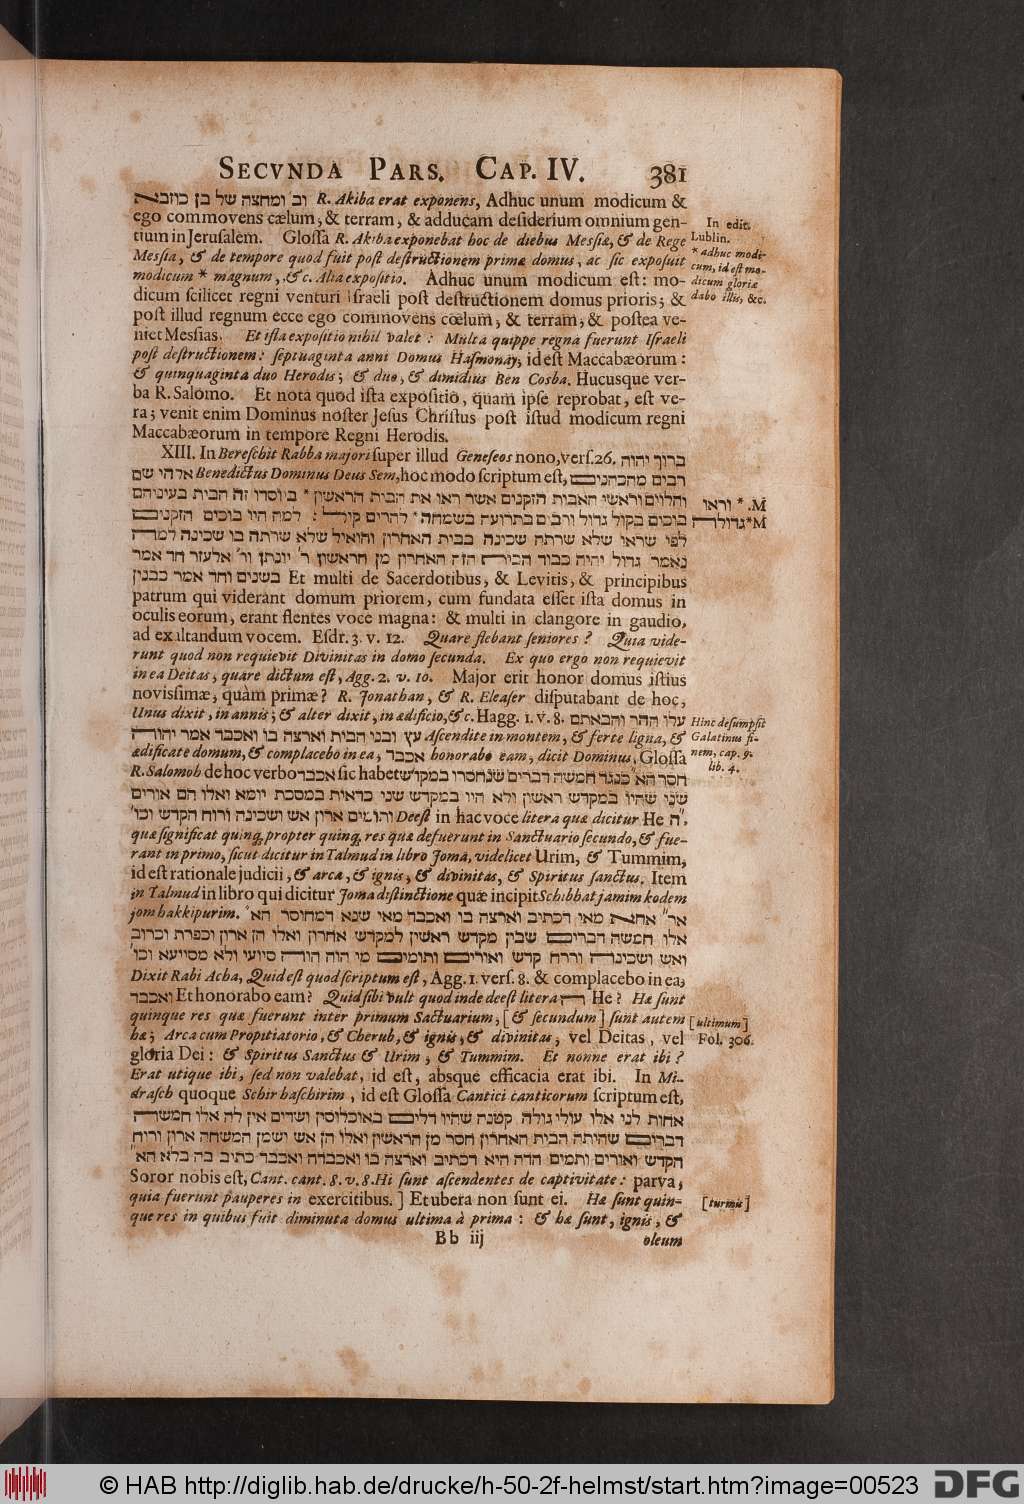 SECVNDA PARS. CAP. IV. 381
וב׳ ומחצה של בן כוזבא R. Akiba erat exponens, Adhuc unum modicum &
ego commovens cælum, & terram, & adducam desiderium omnium gen-
tium in Jerusalem. Glossa R. Akiba exponebat hoc de diebus Messiæ, & de Rege
Messia, & de tempore quod fuit post destructionem primæ domus, ac sic exposuit
modicum * magnum, &c. Alia expositio. Adhuc unum modicum est: mo-
dicum scilicet regni venturi Israeli post destructionem domus prioris; &
post illud regnum ecce ego commovens cœlum, & terram, & postea ve-
niet Messias. Et ista expositio nihil valet: Multa quippe regna fuerunt Israeli
post destructionem: septuaginta anni Domus Hasmonay; id est Maccabæorum:
& quinquaginta duo Herodis; & duo, & dimidius Ben Cosba. Hucusque ver-
ba R. Salomo. Et nota quod ista expositio, quam ipse reprobat, est ve-
ra; venit enim Dominus noster Jesus Christus post istud modicum regni
Maccabæorum in tempore Regni Herodis.
In edit.
Lublin.
* adhuc modi-
cum, id est mo-
dicum gloriæ
dabo illis, &c.
XIII. In Bereschit Rabba majori super illud Geneseos nono, vers. 26. ברוך יהוה
אלהי שם Benedictus Dominus Deus Sem, hoc modo scriptum est, רבים מהכהנים
והלוים וראשי האבות הזקנים אשר ראו את הבית הראשון * ביוסדו זה הבית בעיניהם
בוכים בקול גדול ורבים בתרועה בשמחה * להרים קול : למה היו בוכים הזקנים
לפי שראו שלא שרתה שכינה בבית האחרון והואיל שלא שרתה בו שכינה למה
נאמר גדול יהיה כבוד הבית הזה האחרון מן הראשון ר׳ יונתן ור׳ אלעזר חד אמר
בשנים וחד אמר בבנין Et multi de Sacerdotibus, & Levitis, & principibus
patrum qui viderant domum priorem, cum fundata esset ista domus in
oculis eorum, erant flentes voce magna: & multi in clangore in gaudio,
ad exaltandum vocem. Esdr. 3. v. 12. Quare flebant seniores? Quia vide-
runt quod non requievit Divinitas in domo secunda. Ex quo ergo non requievit
in ea Deitas, quare dictum est, Agg. 2. v. 10. Major erit honor domus istius
novissimæ, quàm primæ? R. Jonathan, & R. Eleaser disputabant de hoc,
Unus dixit, in annis; & alter dixit, in ædificio, &c. Hagg. 1. v. 8. עלו ההר והבאתם
עץ ובני הבית וארצה בו ואכבד אמר יהוה Ascendite in montem, & ferte ligna, &
ædificate domum, & complacebo in ea, אכבד honorabo eam, dicit Dominus, Glossa
R. Salomoh de hoc verbo אכבד sic habet חסר הא׳ כנגד חמשה דברים שנחסרו במקדש
שני שהיו במקדש ראשון ולא היו במקדש שני כדאות במסכת יומא ואלו הם אורים
ותומים ארון אש ושכינה ורוח הקדש וכו׳ Deest in hac voce litera quæ dicitur He ה׳,
quæ significat quinq, propter quinq, res quæ defuerunt in Sanctuario secundo, & fue-
rant in primo, sicut dicitur in Talmud in libro Joma, videlicet Urim, & Tummim,
id est rationale judicii, & arca, & ignis, & divinitas, & Spiritus sanctus. Item
in Talmud in libro qui dicitur Joma distinctione quæ incipit Schibbat jamim kodem
jom hakkipurim. אר׳ אחא מאי דכתיב וארצה בו ואכבד מאי שנא דמחוסר הא׳
אלו חמשה דברים שבין מקדש ראשון למקדש אחרון ואלו הן ארון וכפרת וכרוב
ואש ושכינה ורוח קדש ואורים ותומים מי הוה הוה סיועי ולא מסייעא וכו׳
M. * וראו
M* גדולה
Hinc desumpsit
Galatinus fi-
nem, cap. 9.
lib. 4.
Dixit Rabi Acha, Quid est quod scriptum est, Agg. 1. vers. 8. & complacebo in ea,
ואכבד Et honorabo eam? Quid sibi vult quod inde deest litera ה He? Hæ sunt
quinque res quæ fuerunt inter primum Sactuarium, [& secundum] sunt autem
hæ; Arca cum Propitiatorio, & Cherub, & ignis, & divinitas, vel Deitas, vel
gloria Dei: & Spiritus Sanctus & Urim, & Tummim. Et nonne erat ibi?
Erat utique ibi, sed non valebat, id est, absque efficacia erat ibi. In Mi-
drasch quoque Schir haschirim, id est Glossa Cantici canticorum scriptum est,
אחות לנו אלו עולי גולה קטנה שהיו דלים באוכלוסין ושדים אין לה אלו חמשה
דברים שהיתה הבית האחרון חסר מן הראשון ואלו הן אש ושמן המשחה ארון ורוח
הקדש ואורים ותמים הדה היא דכתיב וארצה בו ואכבדה ואכבד כתיב בה בלא הא׳
Soror nobis est, Cant. cant. 8. v. 8. Hi sunt ascendentes de captivitate: parva,
quia fuerunt pauperes in exercitibus.] Et ubera non sunt ei. Hæ sunt quin-
que res in quibus fuit diminuta domus ultima à prima: & hæ sunt, ignis, &
[ultimum]
Fol. 306.
[turmis]
Bb iij oleum
© HAB http://diglib.hab.de/drucke/h-50-2f-helmst/start.htm?image=00523 DFG